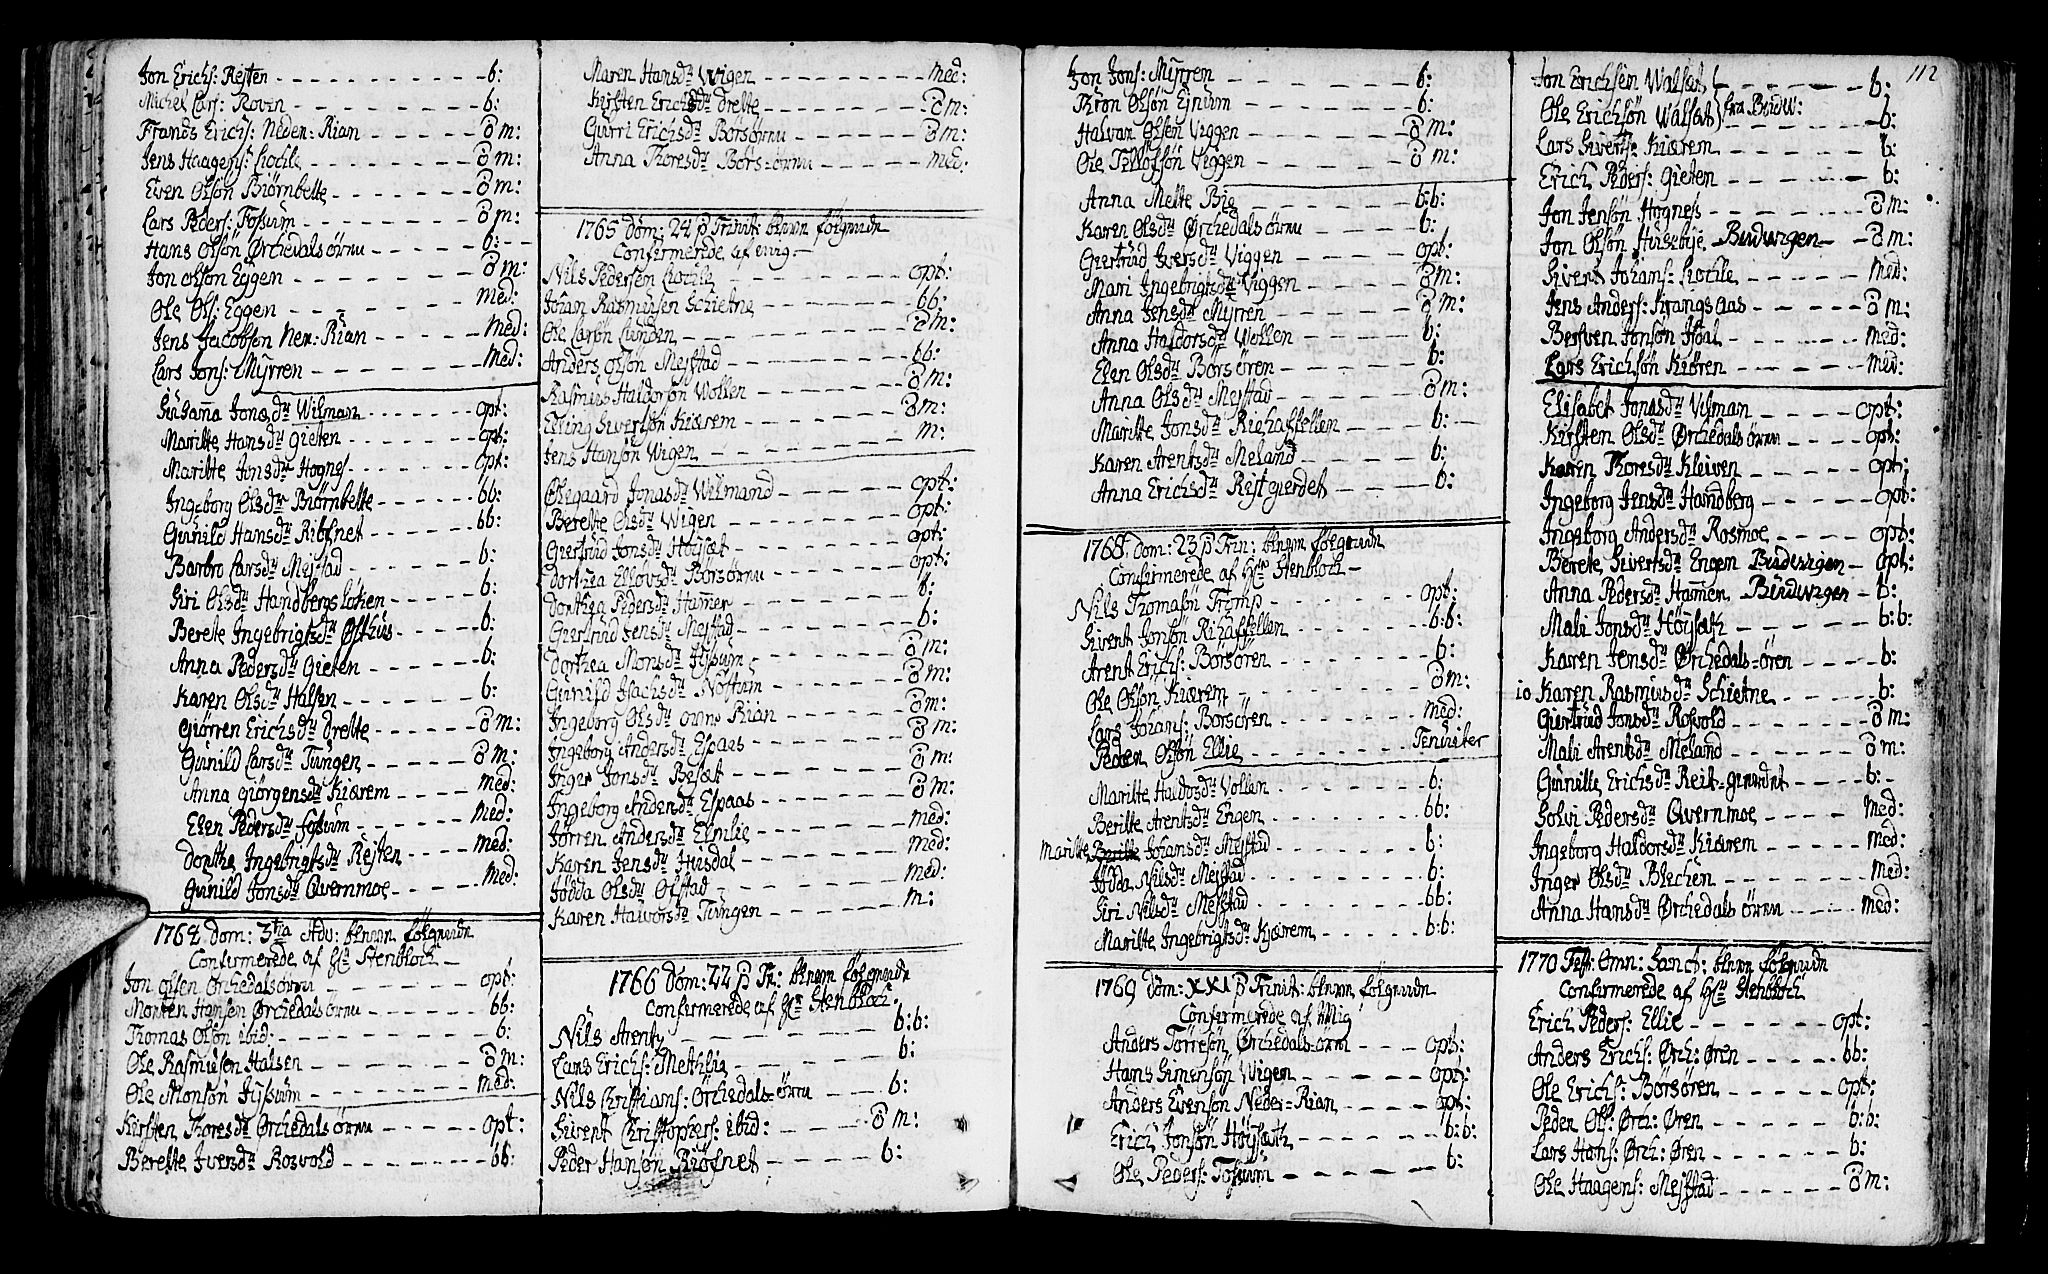 Jon Erichs: Rejten - - - b:
Michel Lars: Rovin - - - b:
Frands Erichs: Neden-Rian - - - om:
Jens Haagens: Lochle - - - om:
Even Olsøn Biørnbette - - - om:
Lars Peders: Fossum - - - om:
Hans Olsøn Ørchedalsørnu - - - b:
Jon olsøn Eggen - - - om:
Ole Ols: Eggen - - - med:
Jens Jacobsøn Ner: Rian - - - med:
Lars Jons: Myrren - - - med:
Susanna Jonæ dr Wilman - - - opt:
Maritte Hansdr Gieten - - - opt:
Maritte Jonsdr Hognes - - - opt:
Ingeborg Olsdr Biørnbette - - - bb:
Gunild Hansdr Riosnet - - - bb:
Barbro Larsdr Mejstad - - - b:
Siri Olsdr Handbergsløken - - - b:
Berette Ingebrigtsdr Østhus - - - b:
Anna Pedersdr Gieten - - - b:
Karen Olsdr Halsen - - - b:
Giørren Erichsdr Drelte - - - om:
Gunild Larsdr Tungen - - - om:
Anna Giørgensdr Kiærem - - - med:
Elen Pedersdr fossum - - - med:
Dorthe Ingebrigtsdr Rejten - - - med:
Gunild Jonsdr Qvernmoe - - - med:
1764 dom: 3tia Adv: blevne følgende
Confirmerede af Hr Stenbloch
Jon olsen Ørchedalsørnu - - - opt:
Morten Hansen Ørchedalsørnu - - - bb:
Thomas Olsøn ibid: - - - b:
Ole Rasmusen Halsen - - - om:
Ole Monsøn Jyssum - - - med:
Kirsten Thoresdr Ørchedalsørnu - - - opt:
Berette Iversdr Rosvold - - - bb:
Maren Hansdr Wigen - - - med:
Kirsten Erichsdr Drelte - - - om:
Gurri Erichsdr Børsørnu - - - om:
Anna Thoresdr Børs-ørnu - - - med:
1765 Dom: 24 p Trinit: blevne følgende
Confirmerede af mig
Nils Pedersen Lochle - - - opt:
Johan Rasmusen Schietne - - - bb:
Ole Larsøn Lunden - - - om:
Anders Olsøn Mejstad - - - bb:
Rasmus Haldorsøn Wollen - - - om:
Elling Sivertsøn Kiærem - - - om:
Jens Hansøn Wigen - - - m:
Olegaard Jonasdr Wilmand - - - opt:
Berette Olsdr Wigen - - - opt:
Giertrud Jonsdr Høysæt - - - opt:
Dorthea Ellevsdr Børsørnu - - - opt:
Dorthea Pedersdr Hammer - - - b:
Giertrud Jensdr Mejstad - - - b:
Dorthea Monsdr Jyssum - - - om:
Gunild Isachsdr Nøstum - - - om:
Ingeborg Olsdr over Rian - - - om:
Ingeborg Andersdr Espaas - - - om:
Inger Jonsdr Besæt - - - om:
Ingeborg Andersdr Espaas - - - om:
Jørren Andersdr Eimlie - - - med:
Karen Jensdr Husdal - - - med:
Jødda Olsdr Ofstad - - - med:
Karen Halvorsdr Tungen - - - m:
1766 dom: 22 p Tr: blevne følgende
Confirmerede af Hr Stenbloch
Nils Arentz - - - b:b:
Lars Erichs: Methlie - - - b:
Nils Christians: Ørchedals-ørnu - - - b:
Sivert Christophers: ibid: - - - om:
Peder Hansøn Riosnet - - - b:
Jon Jons: Myrren - - - b:
Thron Olsøn Ejnum - - - b:
Halvar Olsen Viggen - - - om:
Ole Ellofsøn Viggen - - - om:
Anna Mette Big - - - b:b:
Karen Olsdr Ørchedalsørnu - - - b:
Giertrud Iversdr Viggen - - - opt:
Mari Ingebrigtsdr Viggen - - - om:
Anna Jensdr Myrren - - - om:
Anna Haldorsdr Wollen - - - b:
Elen Olsdr Børsøren - - - b:
Anna Olsdr Mejstad - - - om:
Maritte Jonsdr Riehasfellen - - - b:
Karen Arentsdr Meland - - - b:
Anna Erichsdr Restgierdet - - - b:
1768 dom: 23 p Trin: blevne følgende
Confirmerede af Hr Stenbloch
Nils Thomasøn Tromp - - - opt:
Sivert Jonsøn Rihasfellen - - - b:b:
Arent Erichs: Børsøren - - - b:
Ole Olsøn Kiærem - - - om:
Lars Johans: Børsøren - - - med:
Peder Olsøn Ellie - - - Tenuiter
Maritte Haldorsdr Vollen - - - b:
Beritte Arentsdr Engen - - - bb:
Maritte Johansdr Mejstad - - - b:
Jødda Nilsdr Mejstad - - - b:
Siri Nilsdr Mejstad - - - bb:
Maritte Ingebrigtsdr Kjærem - - - b:b:
1769 Dom: XXI p Trinit: blevne følgende
Confirmerede af Mig
Anders Tørresøn Ørchedals-ørm - - - opt:
Hans Simensøn Wigen - - - opt:
Anders Evensøn Neder-Rian - - - opt:
Erich Jonsøn Høysæth - - - b:b:
Ole Peders: Fossum - - - b:
112
Jon Erichsen Walsæt - - - b:
Ole Erichsøn Walsæt } fra Budw: - - - b:
Lars Siverts: Kiærem - - - b:
Erich Peders: Gieten - - - b:
Jon Jensøn Hognes - - - om:
Jon Olsøn Husebye Budwigen - - - om:
Sivert Johans: Lochle - - - med:
Jens Anders: Krangsaas - - - om:
Bersven Jonsøn Hoal - - - med:
Lars Erichsøn Kiøren - - - med:
Elisabet Jonasdr Vilman - - - opt:
Kirsten Olsdr Ørchedalsørnu - - - opt:
Karen Thoresdr Kleiven - - - opt:
Ingeborg Jensdr Handberg - - - opt:
Ingeborg Andersdr Rosmoe - - - opt:
Berete Sivertsdr Engen Budwigen - opt:
Anna Pedersdr Hammer Budwigen - b:
Mali Jonsdr Høysæth - - - b:b:
Karen Jensdr Ørchedals-øren - - - b:
10 Karen Rasmusdr Schietne - - - b:
Giertrud Jonsdr Rosvold - - - om:
Mali Arentsdr Meland - - - om:
Gunille Erichsdr Reit-gierdet - - - b:
Solvi Pedersdr Qvernmoe - - - med:
Ingeborg Haldorsdr Kiærem - - - med:
Inger Olsdr Blechen - - - med:
Anna Hansdr Ørchedalsørnu - - - med:
1770 Fest: Omn: Sanct: blevne følgende
Confirmerede af Hr Stenbloch
Erich Peders: Ellie - - - opt:
Anders Erichs: Ørch: Øren - - - bb:
Ole Erichs: Børsøren - - - opt:
Peder Ols: Ørch: Øren - - - b:b:
Lars Hans: Ørch: Øren - - - b:
Ole Haagens: Mejstad - - - om: